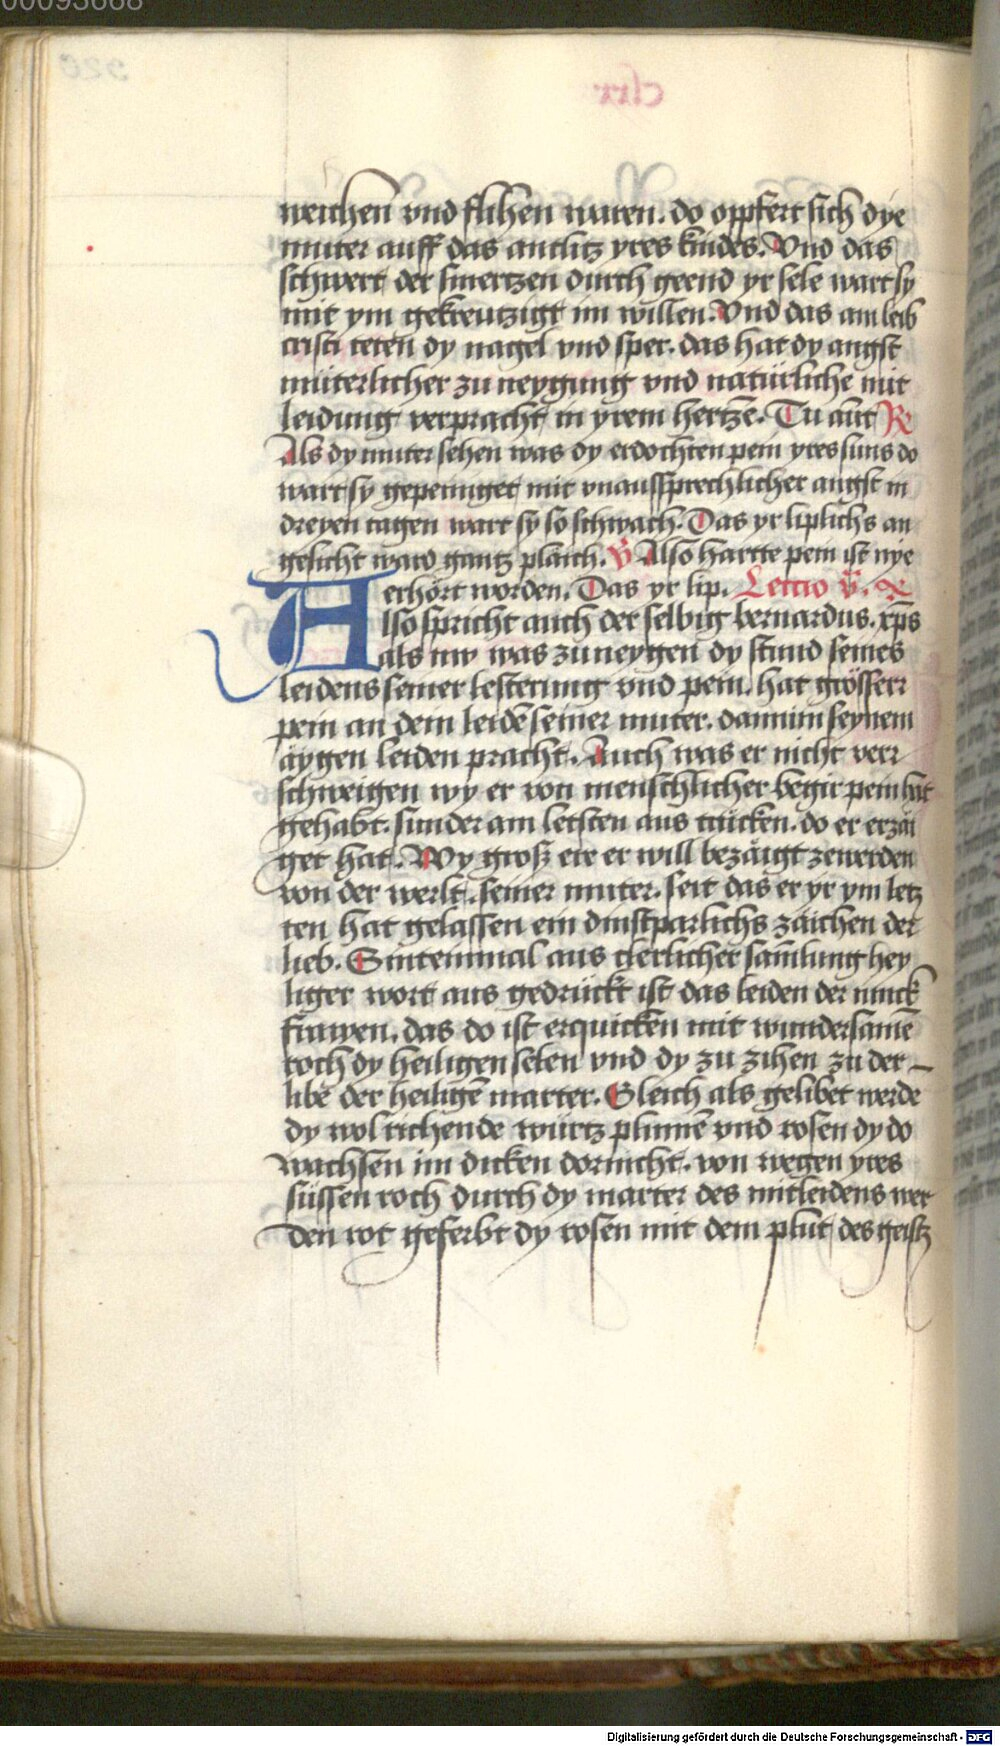 00093668
weichen vnd flihen waren. do oppfert sich dye
muter auff das antlitz yres kindes. Vnd das
schwert der smertzen durch geend yr sele wart sy
mit ym gekreutzigt im willen. Vnd das am leib
cristi teten dy nagel vnd sper. das hat dy angst
müterlicher zu neygung vnd natürliche mit
leidung verpracht in yrem hertzē. Tu aūt R
Als dy muter sehen was dy erdochten pein yres suns do
wart sy gepeiniget mit vnaussprechlicher angst in
dreyen tagen wart sy so schwach. Das yr liplichs an
gesicht ward gantz plaich. V Also hartte pein ist nye
erhört worden. Das yr lip. Lectio v.
Also spricht auch der selbig bernardus. xp̄s
als nw was zuneygen dy stund seines
leidens seiner lesterung vnd pein. hat grösserr
pein an dem leidē seiner muter. dann im seynem
äygen leiden pracht. Auch was er nicht verr
schweigen wy er von menschlicher begir pein hat
gehabt. sunder am letsten aus trücken. do er erzäi
get hat. Wy groß ere er will bezäigt zewerden
von der werlt. seiner muter. seit das er yr ym letz
ten hat gelassen ein dinstparlichs zäichen der
lieb. Sintemmal aus clerlicher samlung hey
liger wort aus gedrückt ist das leiden der iunck
frawen. das do ist erquicken mit wundersamē
roch dy heiligen selen vnd dy zu zihen zu der
libe der heiligē marter. Gleich als gelibet werde
dy wol richende würtz plumē vnd rosen dy do
wachsen im dicken dornicht. von wegen yres
süssen roch durch dy marter des mitleidens wer
den rot geferbt dy rosen mit dem plut des geistz
Digitalisierung gefördert durch die Deutsche Forschungsgemeinschaft - DFG